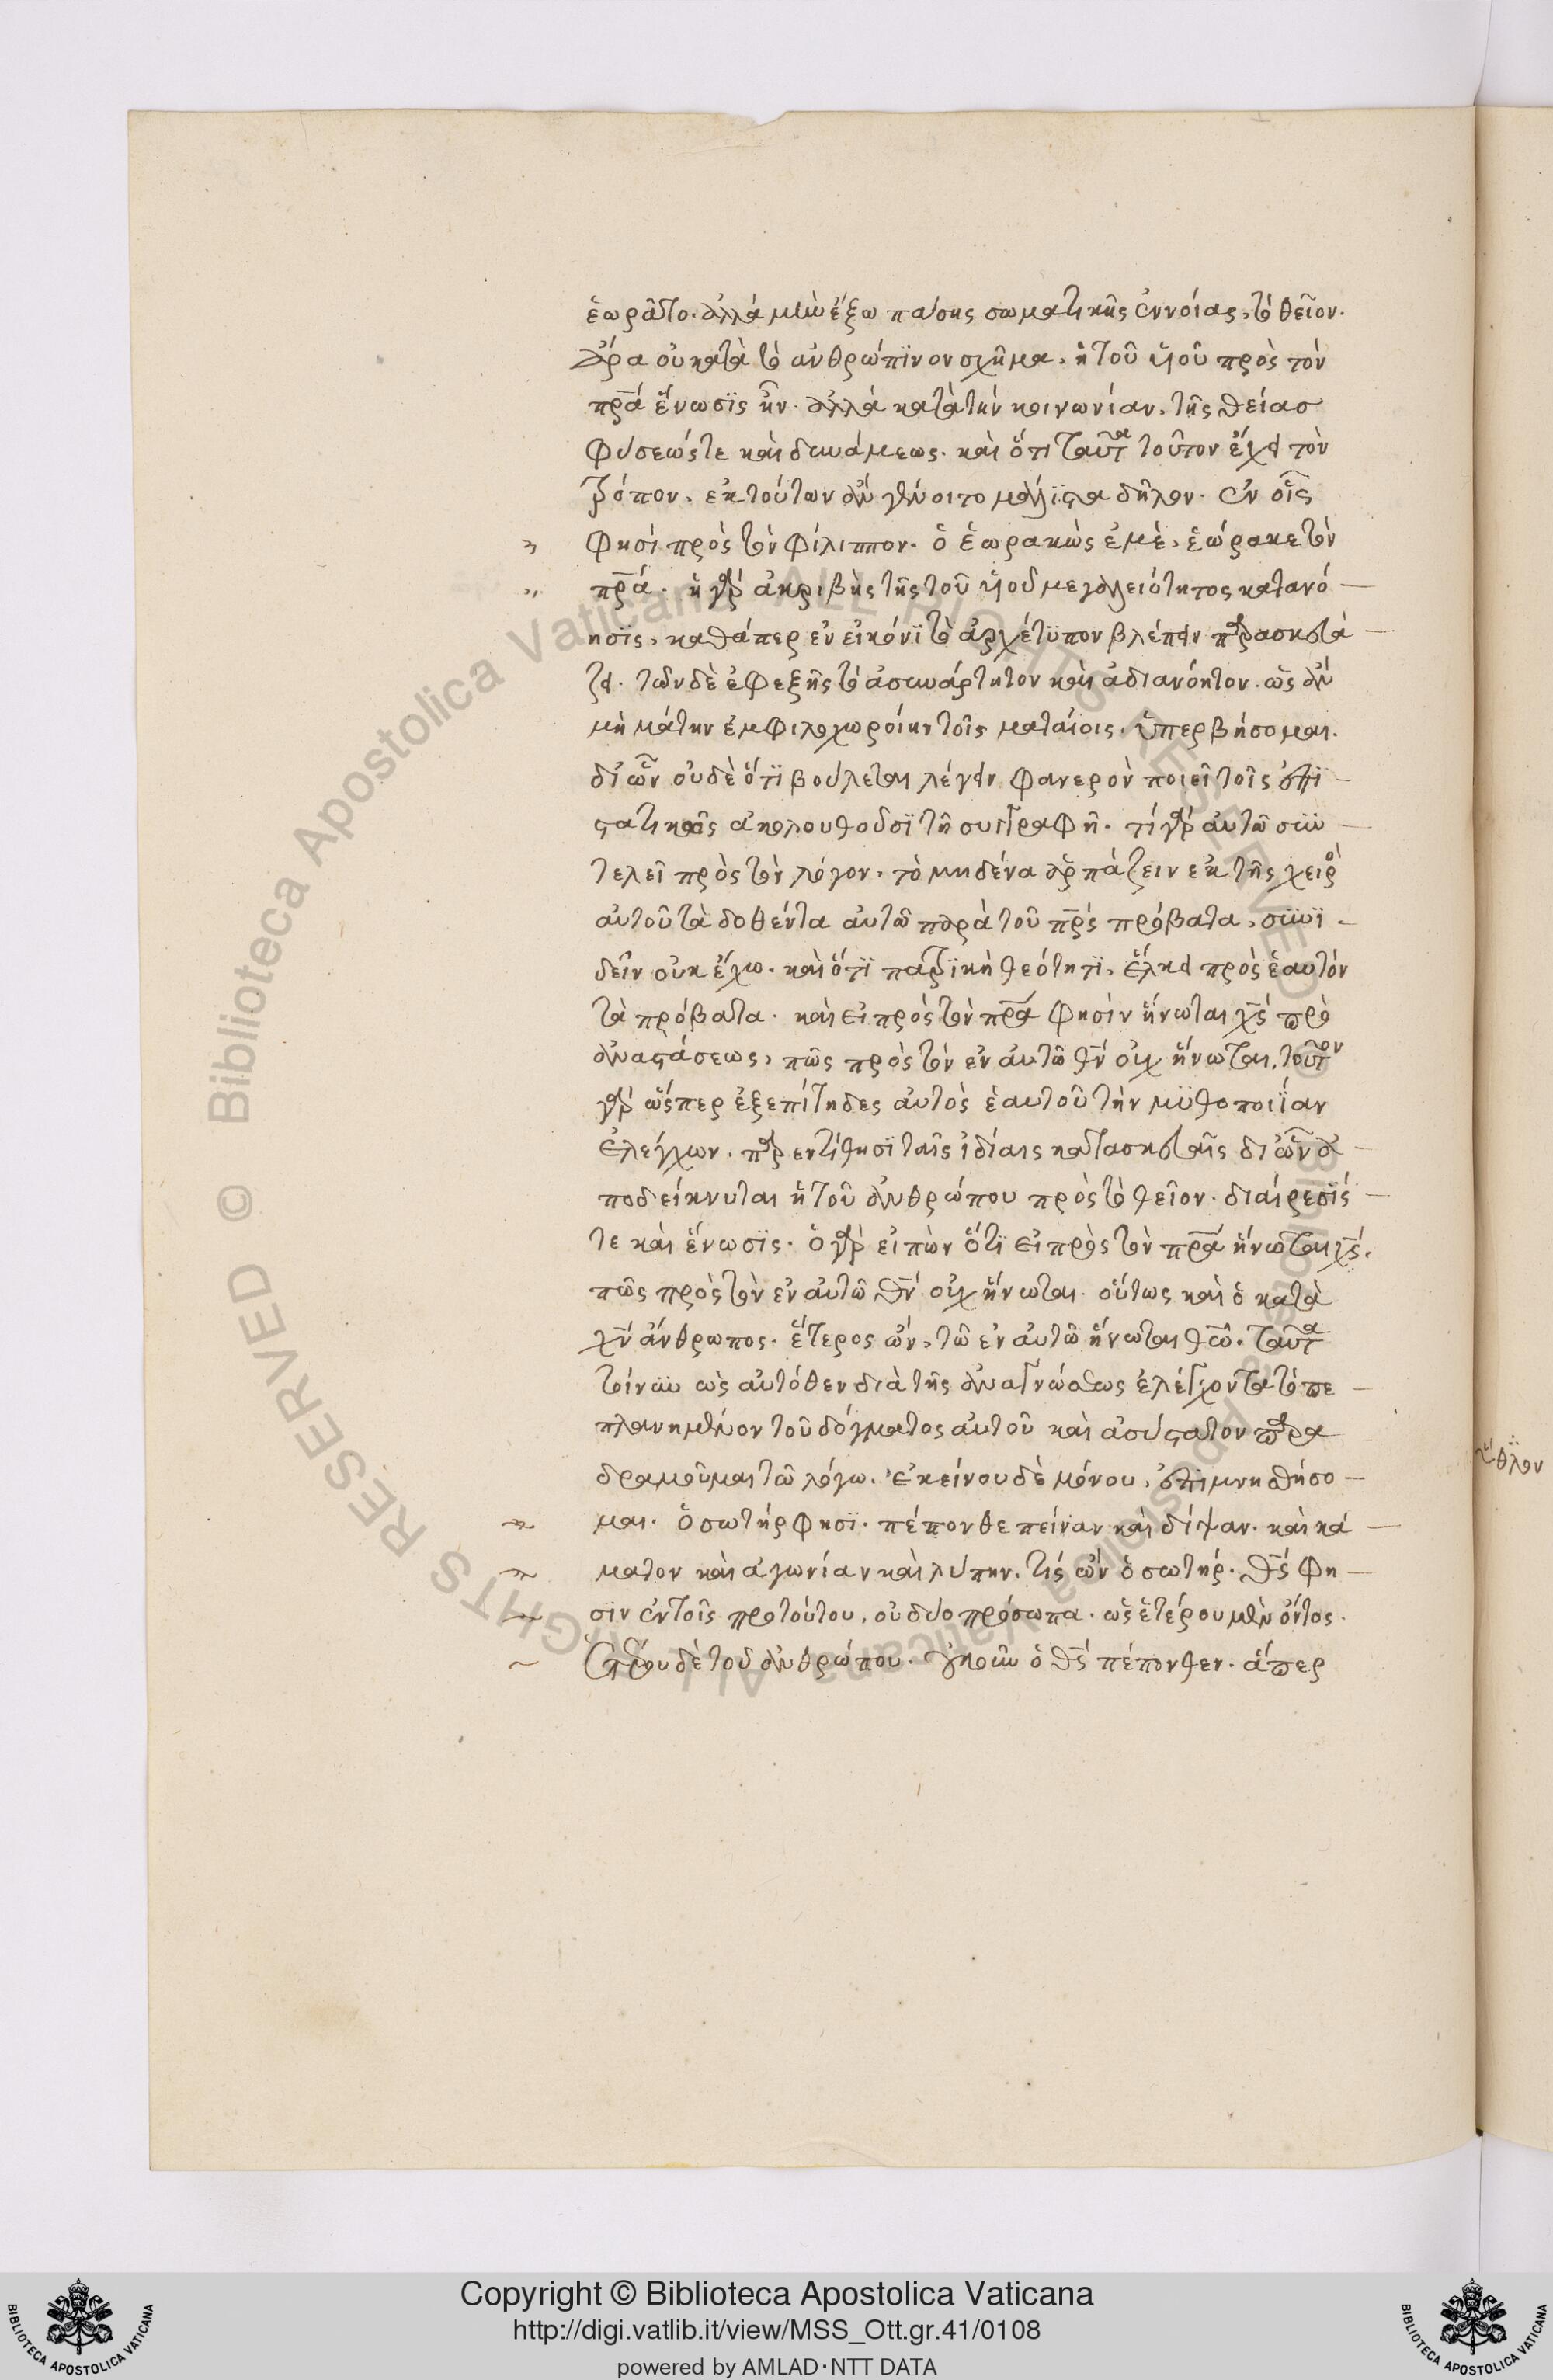 ἑωρᾶτο. ἀλλὰ μὴν ἔξω πάσης σωματικῆς ἐννοίας, τὸ θεῖον.
ἄρα οὐ κατὰ τὸ ἀνθρώπϊνον σχῆμα, ἡ τοῦ υἱοῦ πρὸς τὸν
πρ̅α ἕνωσϊς ἦν. ἀλλὰ κατὰ τὴν κοινωνίαν, τῆς θείασ
φύσεώς τε καὶ δυνάμεως. καὶ ὅτι ταῦτα τοῦτον ἔχει τὸν
τρόπον, ἐκ τούτων ἂν γένοιτο μάλϊστα δῆλον. ἐν οἷς
φησὶ πρὸς τὸν φίλιππον. ὁ ἑωρακὼς ἐμὲ, ἑώρακε τὸν
πρ̅α. ἡ γὰρ ἀκριβὴς τῆς τοῦ υἱοῦ μεγαλειότητος κατανό
ησϊς, καθάπερ ἐν εἰκόνϊ τὸ ἀρχέτϋπον βλέπειν παρασκευά
ζει. τῶν δὲ ἐφεξῆς τὸ ἀσυνάρτητον καὶ ἀδιανόητον. ὡς ἂν
μὴ μάτην ἐμφιλοχωροίην τοῖς ματαίοις, ὑπερβήσομαι.
δι ὧν οὐδὲ ὅτϊ βούλεται λέγειν φανερὸν ποιεῖ τοῖς ἐπϊ
στατικῶς ἀκολουθοῦσϊ τῇ συγγραφῇ. τί γὰρ αὐτῶ συν
τελεῖ πρὸς τὸν λόγον, τὸ μηδένα ἁρπάζειν ἐκ τῆς χειρὸ
αὐτοῦ τὰ δοθέντα αὐτῶ παρὰ τοῦ πρ̅ς πρόβατα, συνϊ
δεῖν οὐκ ἔχω. καὶ ὅτϊ πατρϊκὴ θεότητϊ, ἕλκει πρὸς ἑαυτὸν
τὰ πρόβατα. καὶ εἰ πρὸς τὸν πρ̅α φησὶν ἥνωται χ̅ς πρὸ
ἀναστάσεως, πῶς πρὸς τὸν ἐν αὐτῶ θ̅ν οὐχ ἥνωται, τοῦτον
γὰρ ὥσπερ ἐξεπίτηδες αὐτὸς ἑαυτοῦ τὴν μϋθοποιΐαν
ἐλέγχων, παρεντίθησϊ ταῖς ἰδίαις κατασκευαῖς δι ὧν ἀ
ποδείκνυται ἡ τοῦ ἀνθρώπου πρὸς τὸ θεῖον. διαίρεσϊς
τε καὶ ἕνωσϊς. ὁ γὰρ εἰπὼν ὅτϊ εἰ πρὸς τὸν πρ̅α ἥνωται χ̅ς.
πῶς πρὸς τὸν ἐν αὐτῶ θ̅ν οὐχ ἥνωται. οὕτως καὶ ὁ κατὰ
χ̅ν ἄνθρωπος. ἕτερος ὤν, τῶ ἐν αὐτῶ ἥνωται θ̅ω. ταῦτα
τοίνυν ὡς αὐτόθεν διὰ τῆς ἀναγνώσεως ἐλέγχοντα τὸ πε
πλανημένον τοῦ δόγματος αὐτοῦ καὶ ἀσύστατον παρα
δραμοῦμαι τῶ λόγω. ἐκείνου δὲ μόνου, ἐπιμνησθήσο
μαι. ὁ σωτήρ φησϊ. πέπονθε πεῖναν καὶ δίψαν. καὶ κά
ματον καὶ ἀγωνίαν καὶ λύπην. τίς ὢν ὁ σωτήρ. θ̅ς φη
σϊν ἐν τοῖς πρὸ τούτου, οὐ δύο πρόσωπα. ὡς ἑτέρου μὲν ὄντος.
ἑτέρου δὲ τοῦ ἀνθρώπου. οὐκοῦν ὁ θ̅ς πέπονθεν. ἅπερ